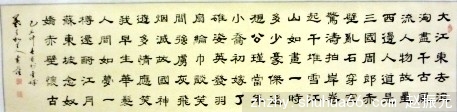 大江東去浪
淘盡千古風
流人物故壘
西邊人道是
三國周郎赤
壁亂石穿空
驚濤拍岸捲
起千堆雪江
山如畫一時
多少豪傑遙
想公瑾當年
小喬初嫁了
雄姿英發羽
扇綸巾談笑
間檣櫓灰飛
煙滅故國神
遊多情應笑
我早生華髮
人間如夢一
樽還酹江月
蘇東坡念奴
嬌赤壁懷古